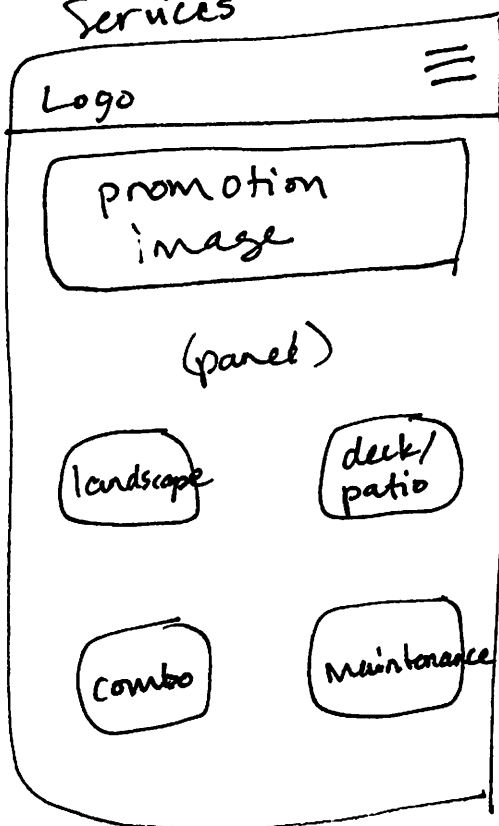 Services
Logo
promotion
image
(panel)
landscape
deck/
patio
combo
Maintenance